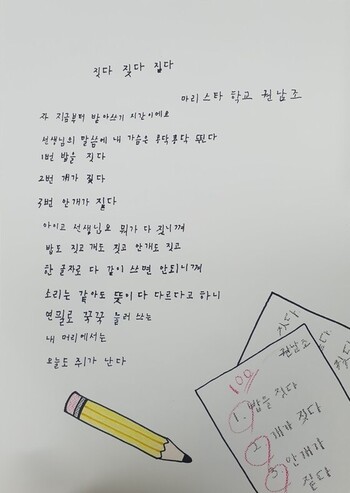 짓다 짖다 짙다
마리스타 학교 권남조
자 지금부터 받아쓰기 시간이에요
선생님의 말씀에 내 가슴은 콩닥콩닥 뛴다
1번 밥을 짓다
2번 개가 짖다
3번 안개가 짙다
아이고 선생님요 뭐가 다 짓니껴
밥도 짓고 개도 짖고 안개도 짙고
한 글자로 다 같이 쓰면 안되니껴
소리는 같아도 뜻이 다 다르다고 하니
연필로 꾹꾹 눌러 쓰는
내 머리에서는
오늘도 쥐가 난다
짓다
권남조
100
1. 밥을 짓다
2. 개가 짖다
3. 안개가
짙다